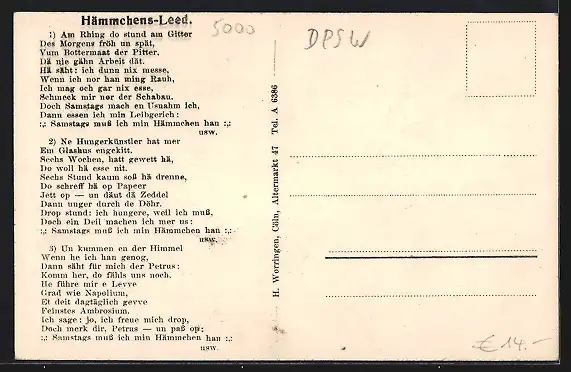 Hämmchens-Leed.
5000
DPSW
1) Am Rhing do stund am Gitter
Des Morgens fröh un spät,
Yum Bottermaat der Pitter.
Dä nie gähn Arbeit dät.
Hä säht: ich dunn nix messe,
Wenn ich nor han ming Rauh,
Ich mag och gar nix esse,
Schmeck mir nor der Schabau.
Doch Samstags mach en Usnahm ich,
Dann essen ich min Leibgerich:
:,: Samstags muß ich min Hämmchen han :,:
usw.
2) Ne Hungerkünstler hat mer
Em Glashus engekitt.
Sechs Wochen, hatt gewett hä,
Do woll hä esse nit.
Sechs Stund kaum soß hä drenne,
Do schreff hä op Papeer
Jett op — un däut dä Zeddel
Dann unger durch de Döhr.
Drop stund: ich hungere, weil ich muß,
Doch ein Deil machen ich mer us:
:,: Samstags muß ich min Hämmchen han :,:
usw.
3) Un kummen en der Himmel
Wenn he ich han genog,
Dann säht für mich der Petrus:
Komm her, do fähls uns noch.
He führe mir e Levve
Grad wie Napolium,
Et deit dagtäglich gevve
Feinstes Ambrosium.
Ich sage: jo, ich freue mich drop,
Doch merk dir, Petrus — un paß op:
:,: Samstags muß ich min Hämmchen han :,:
usw.
H. Worringen, Cöln, Altermarkt 47 Tel. A 6386
€ 14.-